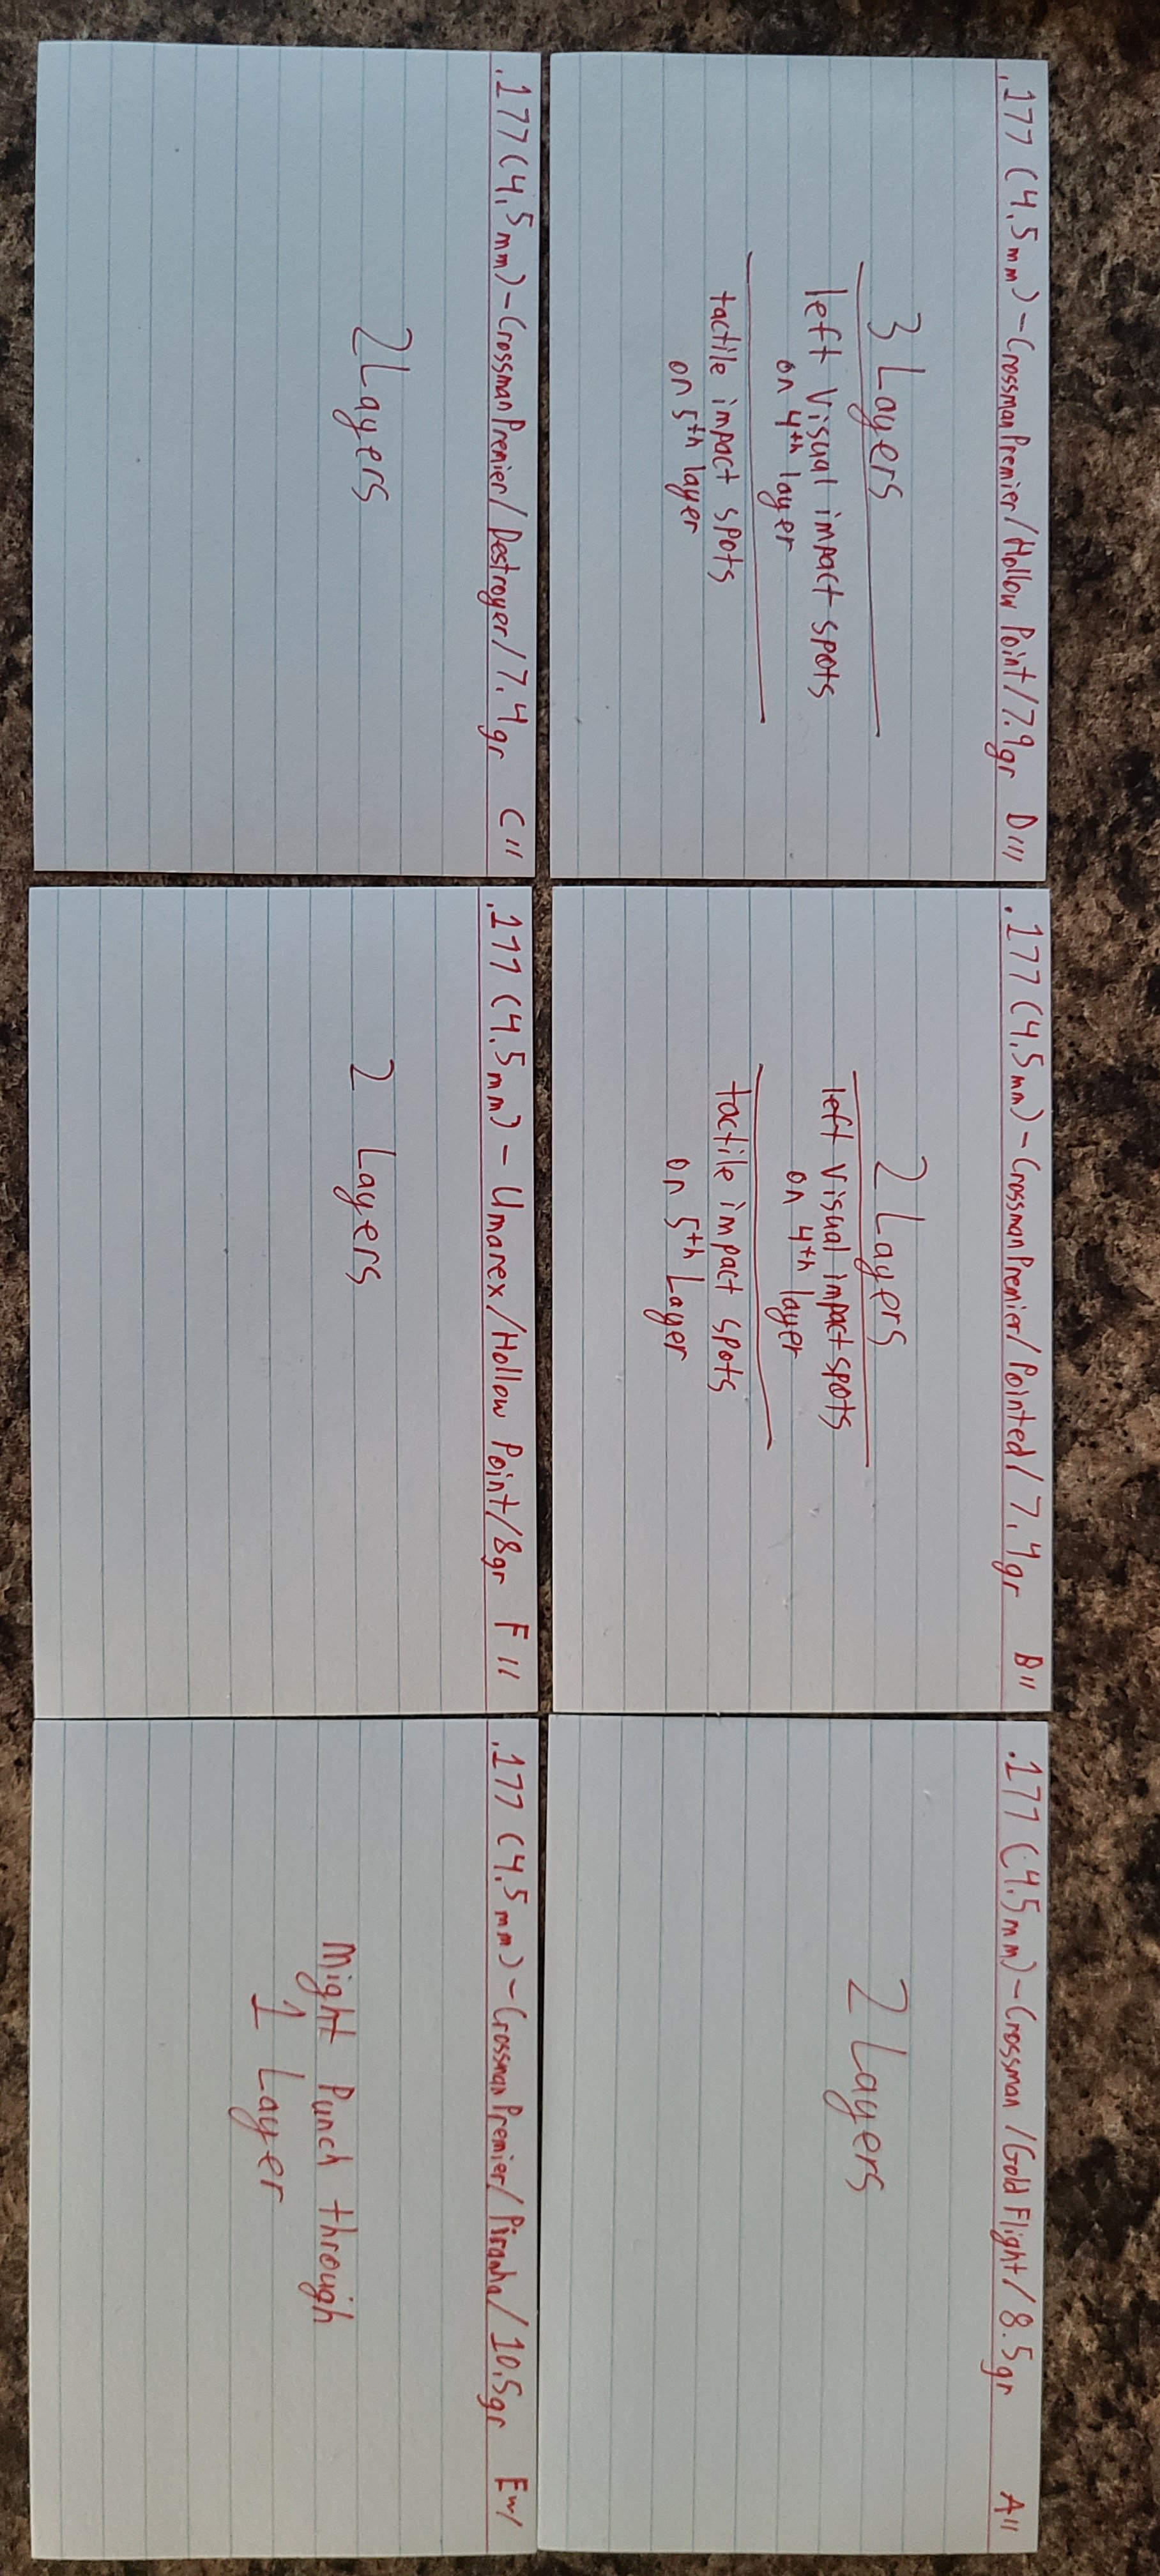 .177 (4.5mm) - Crossman Premier / Hollow Point / 7.9gr D///
3 Layers
left Visual impact spots
on 4th layer
tactile impact spots
on 5th layer
.177 (4.5mm) - Crossman Premier / Pointed / 7.4gr B//
2 Layers
left Visual impact spots
on 4th layer
tactile impact spots
on 5th Layer
.177 (4.5mm) - Crossman / Gold Flight / 8.5gr A//
2 Layers
.177 (4.5mm) - Crossman Premier / Destroyer / 7.4gr C//
2 Layers
.177 (4.5mm) - Umarex / Hollow Point / 8gr F//
2 Layers
.177 (4.5mm) - Crossman Premier / Piranha / 10.5gr E
Might Punch through
1 Layer